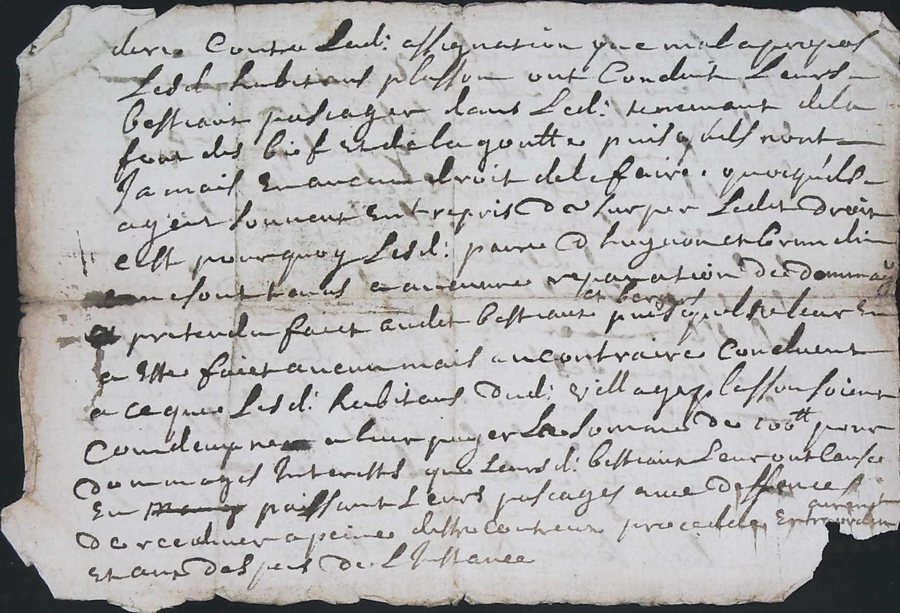 dere Contre Led: assignation que mal apropos
Lesd habitans plasson ont Conduit Leurs
bestiaux pascager dans Led: tenement dela
font des bief Et de la goutte puis quils nont
Jamais Eu aucun droit de le faire, quoy quils
ayent souvent Entrepris Dusurper Ledit droit
cest pourquoy Lesd:
ne sont tenus a aucune reparation de dommag
pretendu faict audit bestiaux et berger puis quil ne leur En
a Esté faict aucun mais au contraire Concluent
a ce que Lesd: habitans dud: village plasson soient
Condempnes a leur payer La somme de 100tt pour
dommages Interests que Leursd: bestiaux Leur ont Cause
En paissant Leurs pascages avec deffences
De recidiver a peine destre contreux procedé Extraordin
Et aux Despens De LInstance